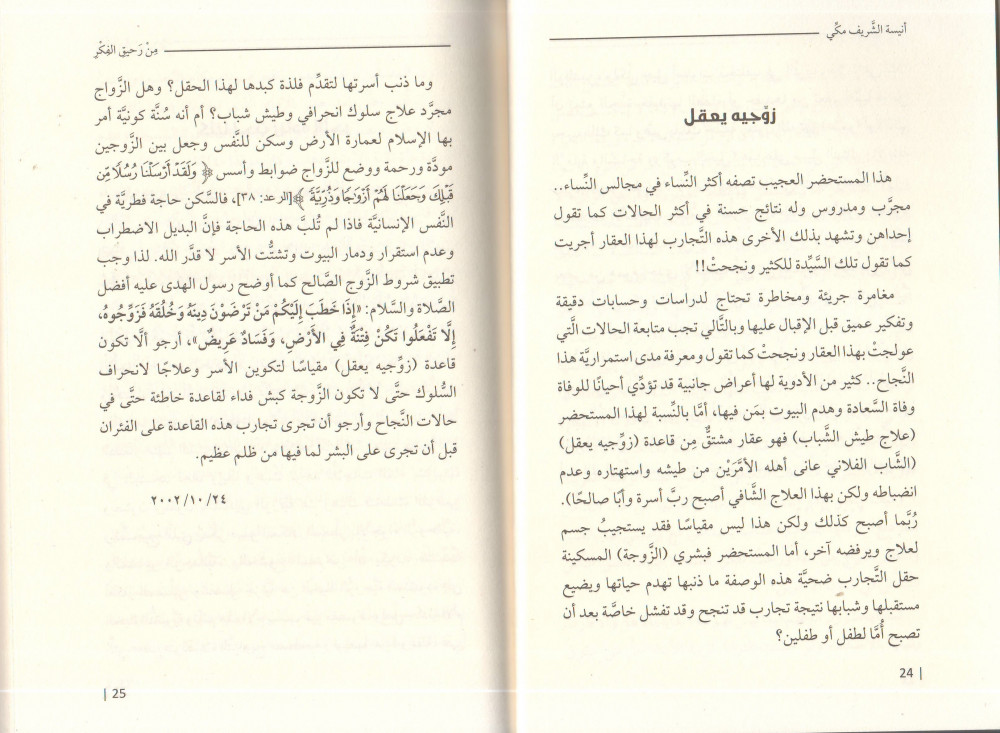 أنيسة الشَّريف مكِّي
زوِّجيه يعقل
هذا المستحضر العجيب تصفه أكثر النِّساء في مجالس النِّساء..
مجرَّب ومدروس وله نتائج حسنة في أكثر الحالات كما تقول
إحداهن وتشهد بذلك الأخرى هذه التَّجارب لهذا العقار أجريت
كما تقول تلك السَّيِّدة للكثير ونجحتْ!!
مغامرة جريئة ومخاطرة تحتاج لدراسات وحسابات دقيقة
وتفكير عميق قبل الإقبال عليها وبالتَّالي تجب متابعة الحالات الَّتي
عولجتْ بهذا العقار ونجحتْ كما تقول ومعرفة مدى استمراريَّة هذا
النَّجاح.. كثير من الأدوية لها أعراض جانبية قد تؤدِّي أحيانًا للوفاة
وفاة السَّعادة وهدم البيوت بمَن فيها، أمَّا بالنِّسبة لهذا المستحضر
(علاج طيش الشَّباب) فهو عقار مشتقٌّ مِن قاعدة (زوِّجيه يعقل)
(الشَّاب الفلاني عانى أهله الأمَّرَيْن من طيشه واستهتاره وعدم
انضباطه ولكن بهذا العلاج الشَّافي أصبح ربَّ أسرة وأبًا صالحًا).
رُبَّما أصبح كذلك ولكن هذا ليس مقياسًا فقد يستجيبُ جسم
لعلاج ويرفضه آخر، أما المستحضر فبشري (الزَّوجة) المسكينة
حقل التَّجارب ضحيَّة هذه الوصفة ما ذنبها تهدم حياتها ويضيع
مستقبلها وشبابها نتيجة تجارب قد تنجح وقد تفشل خاصَّة بعد أن
تصبح أُمًّا لطفل أو طفلين؟
24 |
مِنْ رَحيق الفِكْرِ
وما ذنب أسرتها لتقدِّم فلذة كبدها لهذا الحقل؟ وهل الزَّواج
مجرَّد علاج سلوك انحرافي وطيش شباب؟ أم أنه سُنَّة كونيَّة أمر
بها الإسلام لعمارة الأرض وسكن للنَّفس وجعل بين الزَّوجين
مودَّة ورحمة ووضع للزَّواج ضوابط وأسس ﴿ وَلَقَدْ أَرْسَلْنَا رُسُلًا مِّن
قَبْلِكَ وَجَعَلْنَا لَهُمْ أَزْوَاجًا وَذُرِّيَّةً ﴾[الرعد: ٣٨]، فالسَّكن حاجة فطريَّة في
النَّفس الإنسانيَّة فاذا لم تُلبَّ هذه الحاجة فإنَّ البديل الاضطراب
وعدم استقرار ودمار البيوت وتشتُّت الأسر لا قدَّر الله. لذا وجب
تطبيق شروط الزَّوج الصَّالح كما أوضح رسول الهدى عليه أفضل
الصَّلاة والسَّلام: «إِذَا خَطَبَ إِلَيْكُمْ مَنْ تَرْضَوْنَ دِينَهُ وَخُلُقَهُ فَزَوِّجُوهُ،
إِلَّا تَفْعَلُوا تَكُنْ فِتْنَةٌ فِي الْأَرْضِ، وَفَسَادٌ عَرِيضٌ»، أرجو ألَّا تكون
قاعدة (زوِّجيه يعقل) مقياسًا لتكوين الأسر وعلاجًا لانحراف
السُّلوك حتَّى لا تكون الزَّوجة كبش فداء لقاعدة خاطئة حتَّى في
حالات النَّجاح وأرجو أن تجرى تجارب هذه القاعدة على الفئران
قبل أن تجرى على البشر لما فيها من ظلم عظيم.
٢٠٠٢/١٠/٢٤
| 25